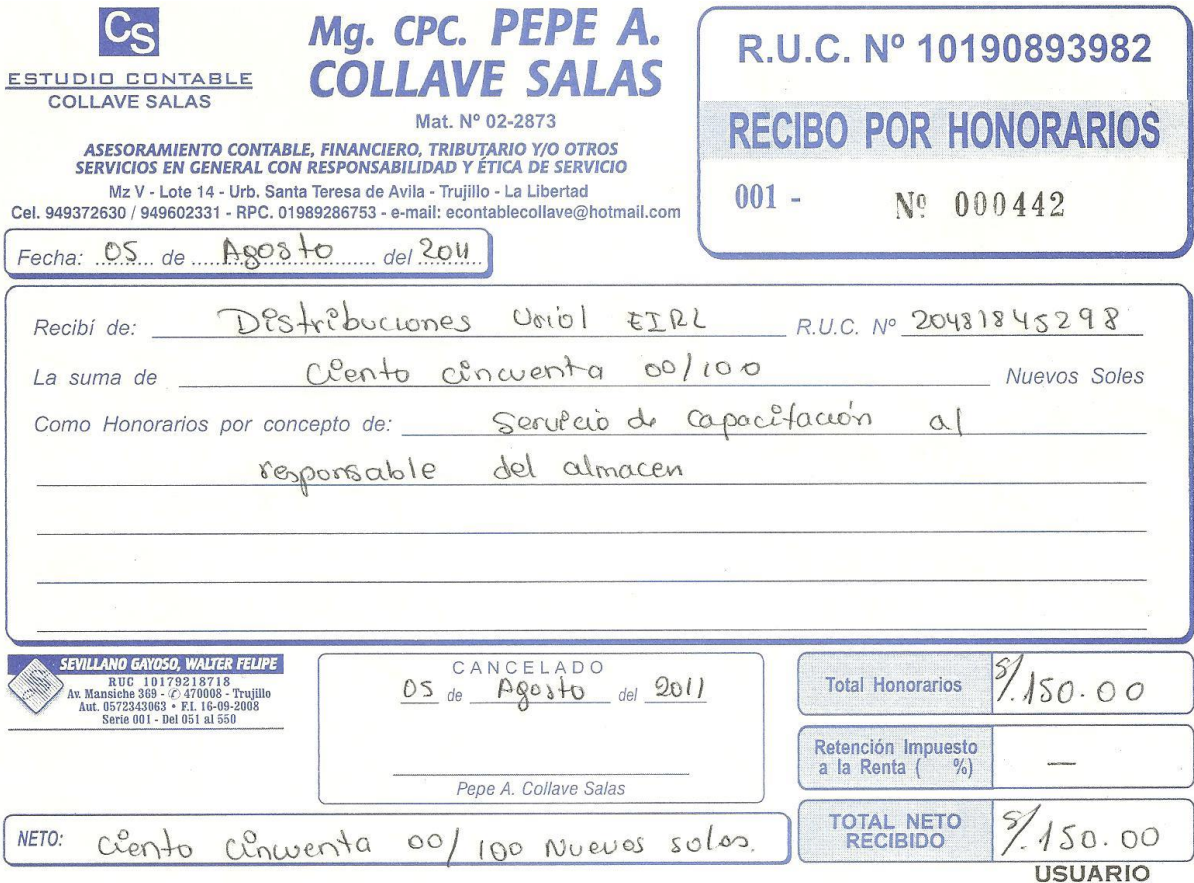 CS
ESTUDIO CONTABLE
COLLAVE SALAS
Mg. CPC. PEPE A.
COLLAVE SALAS
Mat. Nº 02-2873
ASESORAMIENTO CONTABLE, FINANCIERO, TRIBUTARIO Y/O OTROS
SERVICIOS EN GENERAL CON RESPONSABILIDAD Y ÉTICA DE SERVICIO
Mz V - Lote 14 - Urb. Santa Teresa de Avila - Trujillo - La Libertad
Cel. 949372630 / 949602331 - RPC. 01989286753 - e-mail: econtablecollave@hotmail.com
R.U.C. Nº 10190893982
RECIBO POR HONORARIOS
001 - Nº 000442
Fecha: 05 de Agosto del 2011
Recibí de: Distribuciones Uriol EIRL R.U.C. Nº 20481845298
La suma de Ciento cincuenta 00/100 Nuevos Soles
Como Honorarios por concepto de: Servicio de Capacitación al
responsable del almacen
SEVILLANO GAYOSO, WALTER FELIPE
RUC 10179218718
Av. Mansiche 369 - ✆ 470008 - Trujillo
Aut. 0572343063 • F.I. 16-09-2008
Serie 001 - Del 051 al 550
CANCELADO
05 de Agosto del 2011
Pepe A. Collave Salas
Total Honorarios S/. 150.00
Retención Impuesto
a la Renta ( %) —
NETO: Ciento Cincuenta 00/100 Nuevos soles.
TOTAL NETO
RECIBIDO S/. 150.00
USUARIO